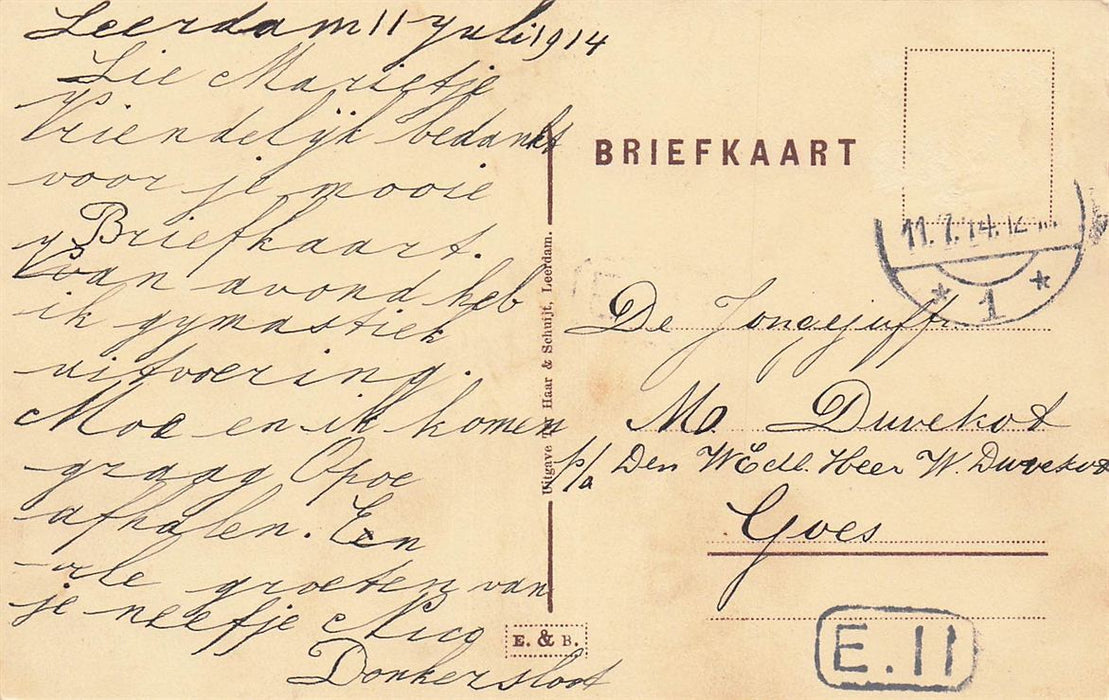 Leerdam 11 Juli 1914
Lie Marietje
Vriendelijk bedankt
voor je mooie
Briefkaart.
Van avond heb
ik gymastiek
uitvoering.
Moe en ik komen
graag Opoe
afhalen. Een
vle groeten van
je neefje Nico
Donkersloot
BRIEFKAART
11.7.14.12
* 1 *
Uitgave Ter Haar & Schuijt, Leerdam.
De Jongejuffr.
M. Duvekot
p/a Den WEdl. Heer W. Duvekot
Goes
E. & B.
E.11